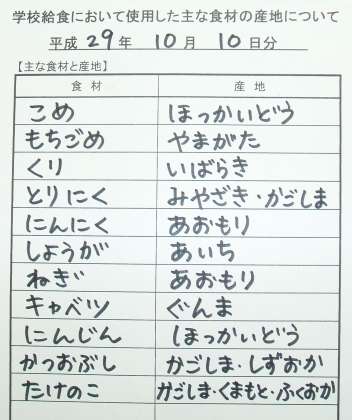 学校給食において使用した主な食材の産地について
平成 29年 10月 10日分
【主な食材と産地】
食材 産地
こめ ほっかいどう
もちごめ やまがた
くり いばらき
とりにく みやざき・かごしま
にんにく あおもり
しょうが あいち
ねぎ あおもり
キャベツ ぐんま
にんじん ほっかいどう
かつおぶし かごしま・しずおか
たけのこ かごしま・くまもと・ふくおか